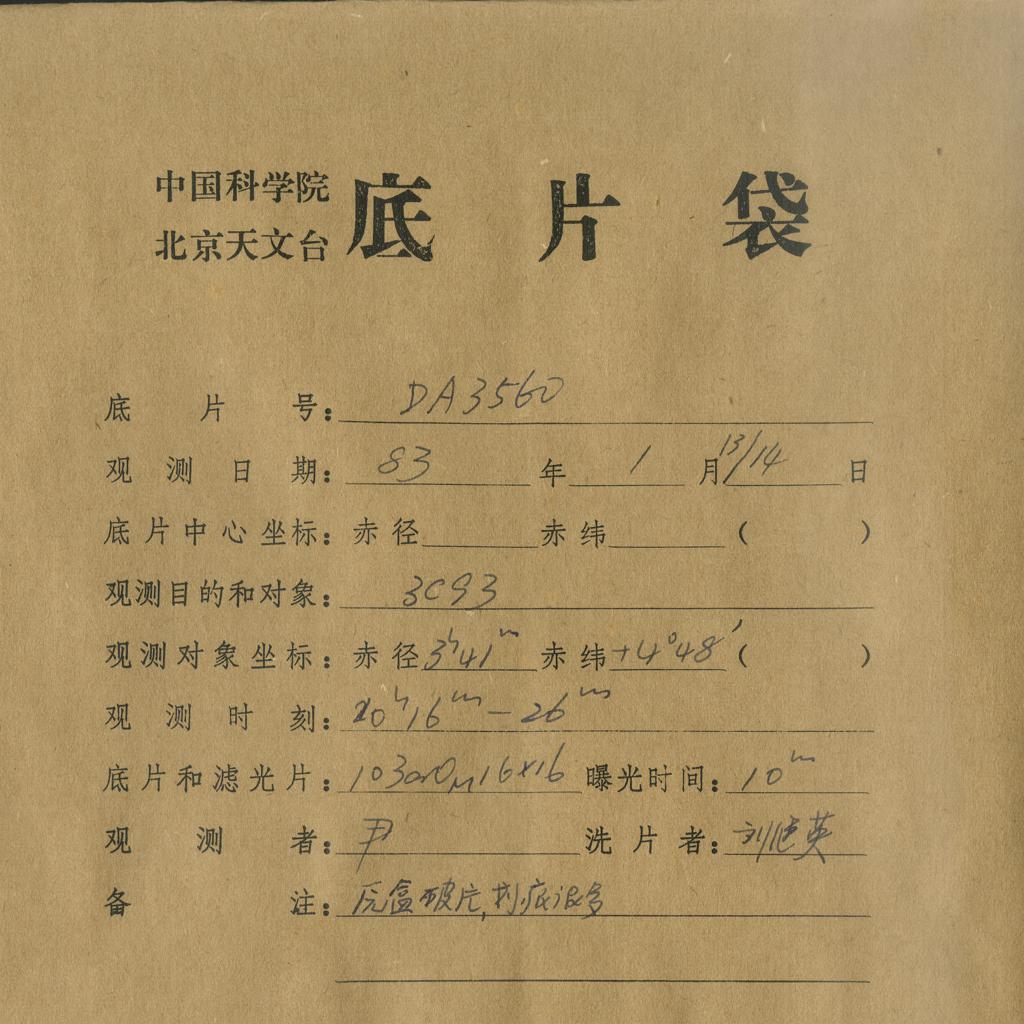 中国科学院
北京天文台
底片袋
底片号: DA3560
观测日期: 83年1月13/14日
底片中心坐标: 赤径 赤纬 ( )
观测目的和对象: 3C93
观测对象坐标: 赤径3ʰ41ᵐ 赤纬+4°48′ ( )
观测时刻: 20ʰ16ᵐ-26ᵐ
底片和滤光片: 16×16 曝光时间: 10ᵐ
观测者: 尹 洗片者: 刘 英
备注: 盒破片,划痕很多